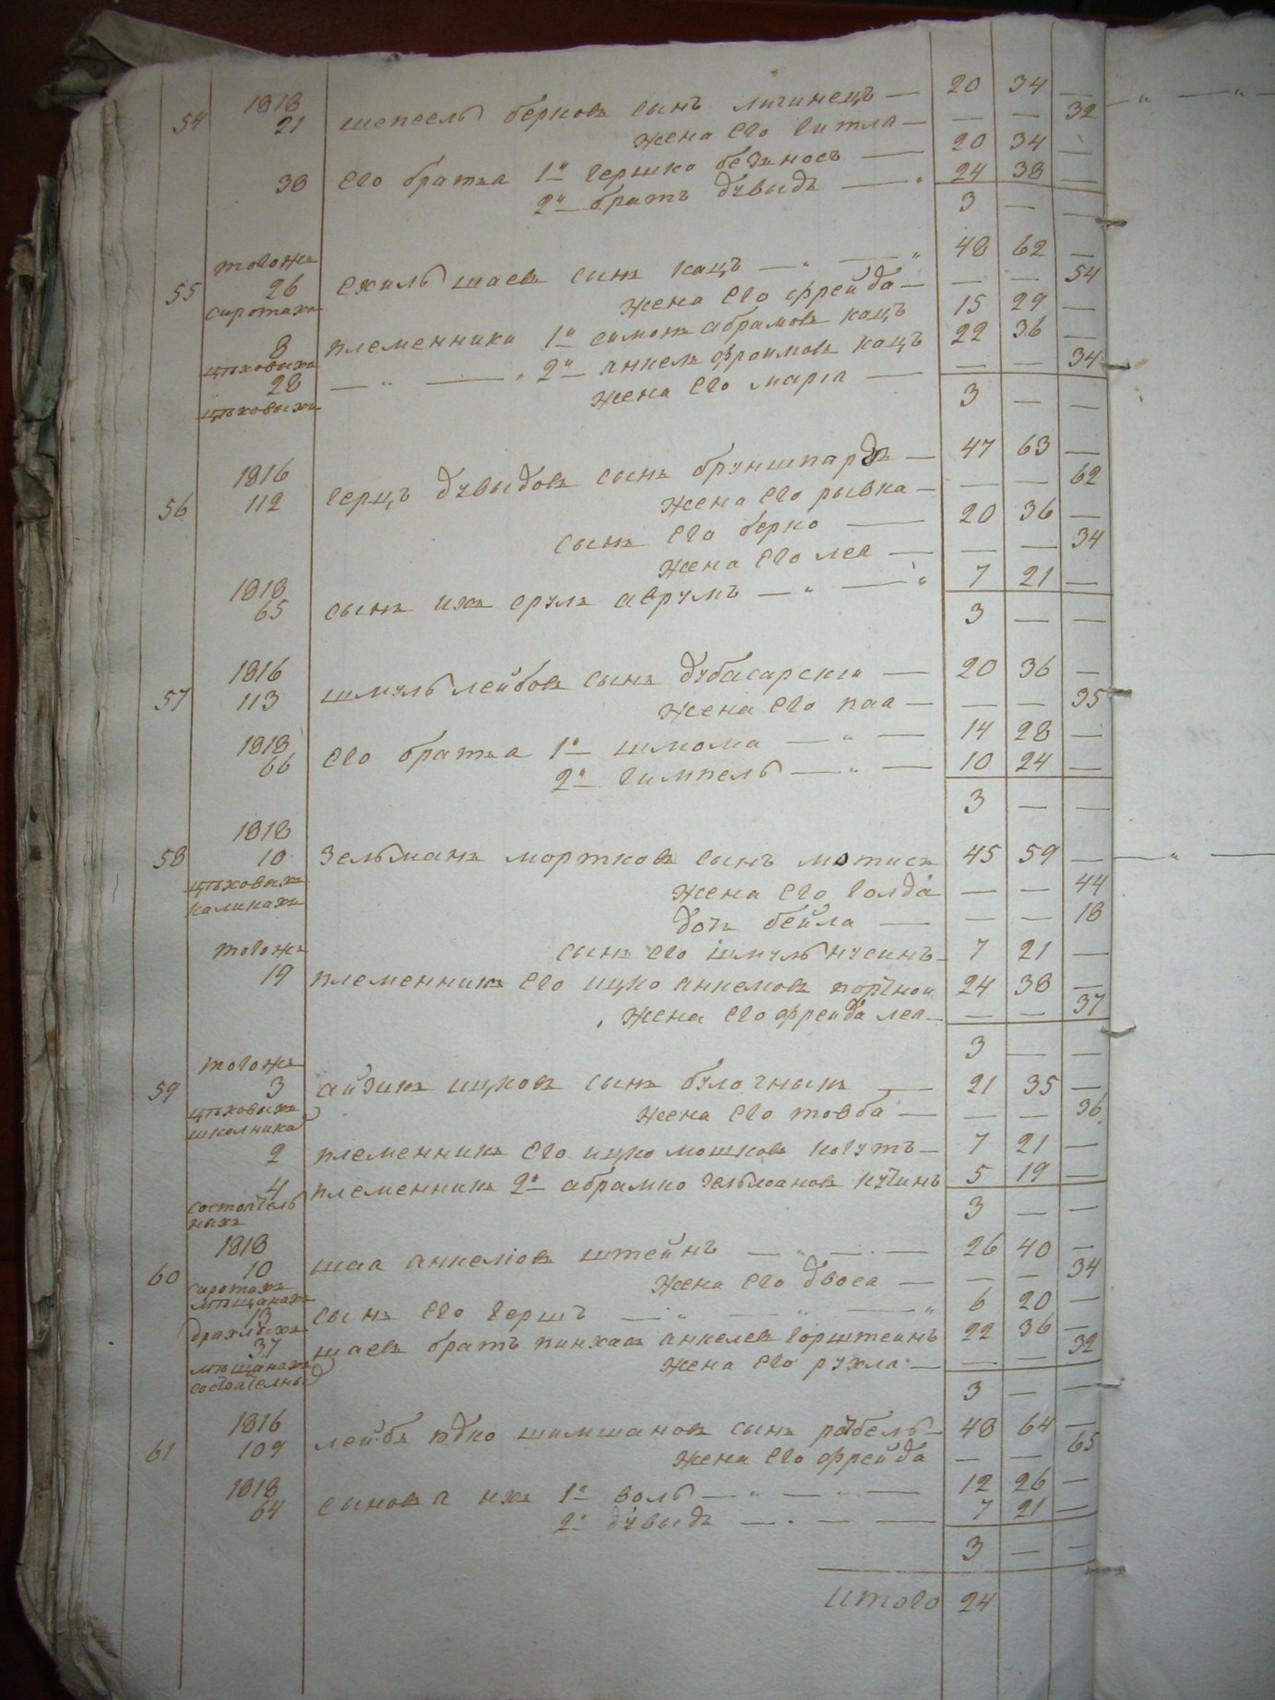 54 1818 21 шепсель берков сынъ личинецъ — 20 34 —
жена его гитла — — — 32
38 его братья 1й гершко безносъ — 20 34 —
2й братъ дувыдъ — 24 38 —
3 — —
55 тогож 26 сиротахъ ехиль шаев сынъ кацъ — 48 62 —
жена его фрейда — — — 54
8 цѣховыхъ племенники 1й симонъ абрамов кацъ 15 29 —
28 цѣховыхъ — 2й анкелъ фроимов кацъ 22 36 —
жена его марiя — — — 34
3 — —
56 1816 112 герцъ дувыдов сынъ брунштардъ — 47 63 —
жена его рывка — — — 62
сынъ его берко — 20 36 —
жена его лея — — — 34
1818 65 сынъ ихъ сруль аврумъ — 7 21 —
3 — —
57 1816 113 шмуль лейбов сынъ дубасарски — 20 36 —
жена его пая — — — 35
1818 66 его братья 1й шлиома — 14 28 —
2й гимпель — 10 24 —
3 — —
58 1818 10 цѣховыхъ каликахъ зельманъ мортков сынъ мотисъ 45 59 —
жена его голда — — 44
дочь бейла — — — 18
тогож сынъ его шмуль нусинъ — 7 21 —
19 племенникъ его ицко анкелов портной 24 38 —
жена его фрейда лея — — — 37
3 — —
59 тогож 3 цѣховыхъ школника айзикъ ицков сынъ булочныкъ — 21 35 —
жена его товба — — — 36
2 племенникъ его ицко мошков когутъ — 7 21 —
4 состоятельныхъ племенникъ 2й абрамко зельманов кучинъ 5 19 —
3 — —
60 1818 10 сиротахъ мѣщанахъ шая анкелiов штейнъ — 26 40 —
жена его двоса — — — 34
13 драхлыхъ сынъ его гершъ — 6 20 —
37 мѣщанахъ состоятелныхъ шаевъ братъ пинхас анкелев горштеинъ 22 36 —
жена его рухля — — — 32
3 — —
61 1816 109 лейба юдко шимшанов сынъ рабель — 48 64 —
жена его фрейда — — 65
1818 64 сыновья ихъ 1й воль — 12 26 —
2й дувыдъ — 7 21 —
3 — —
итого 24